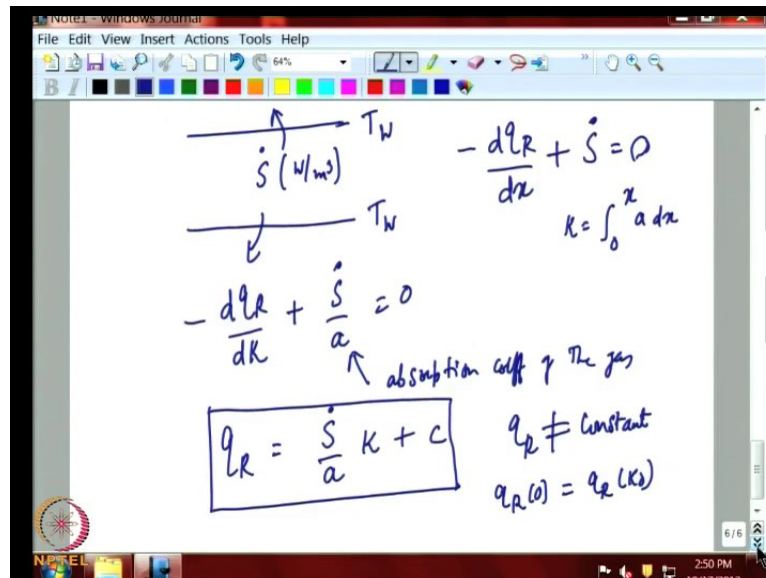 Note1 - Windows Journal
File Edit View Insert Actions Tools Help
64%
B I
T_W
Ṡ (W/m³)
- dq_R/dx + Ṡ = 0
T_W
K = ∫₀ˣ a dx
- dq_R/dK + Ṡ/a = 0
absorption coeff of the gas
q_R = Ṡ/a K + C
q_R ≠ Constant
q_R(0) = q_R(K₀)
6/6
NPTEL
2:50 PM